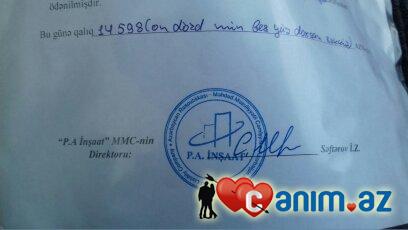 ödənilmişdir.
Bu günə qalıq 14598 (on dörd min beş yüz doxsan səkkiz)
"P.A İnşaat" MMC-nin
Direktoru:
Səftərov İ.Z.
P.A. İNŞAAT
canim.az